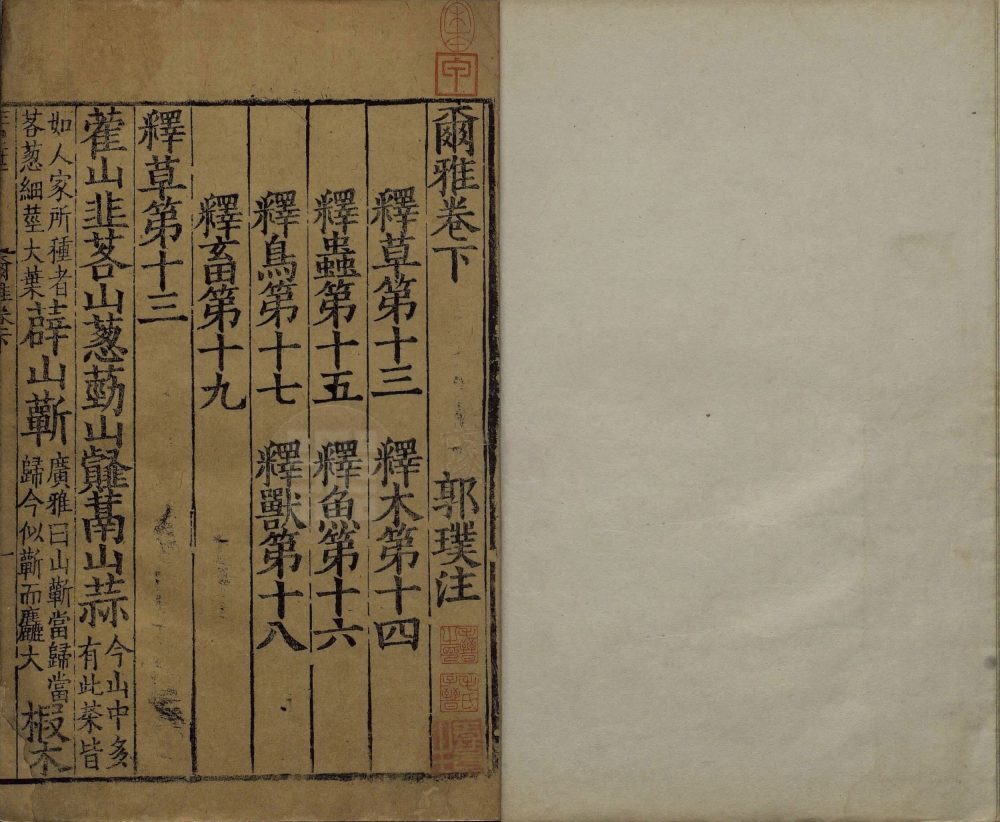 爾雅卷下 郭璞注
釋草第十三 釋木第十四
釋蟲第十五 釋魚第十六
釋鳥第十七 釋獸第十八
釋畜第十九
釋草第十三
藿山韭茖山蔥葝山䪥蒚山蒜今山中多有此菜皆
如人家所種者茖蔥細莖大葉薜山蘄廣雅曰山蘄當歸當歸今似蘄而麤大椴木